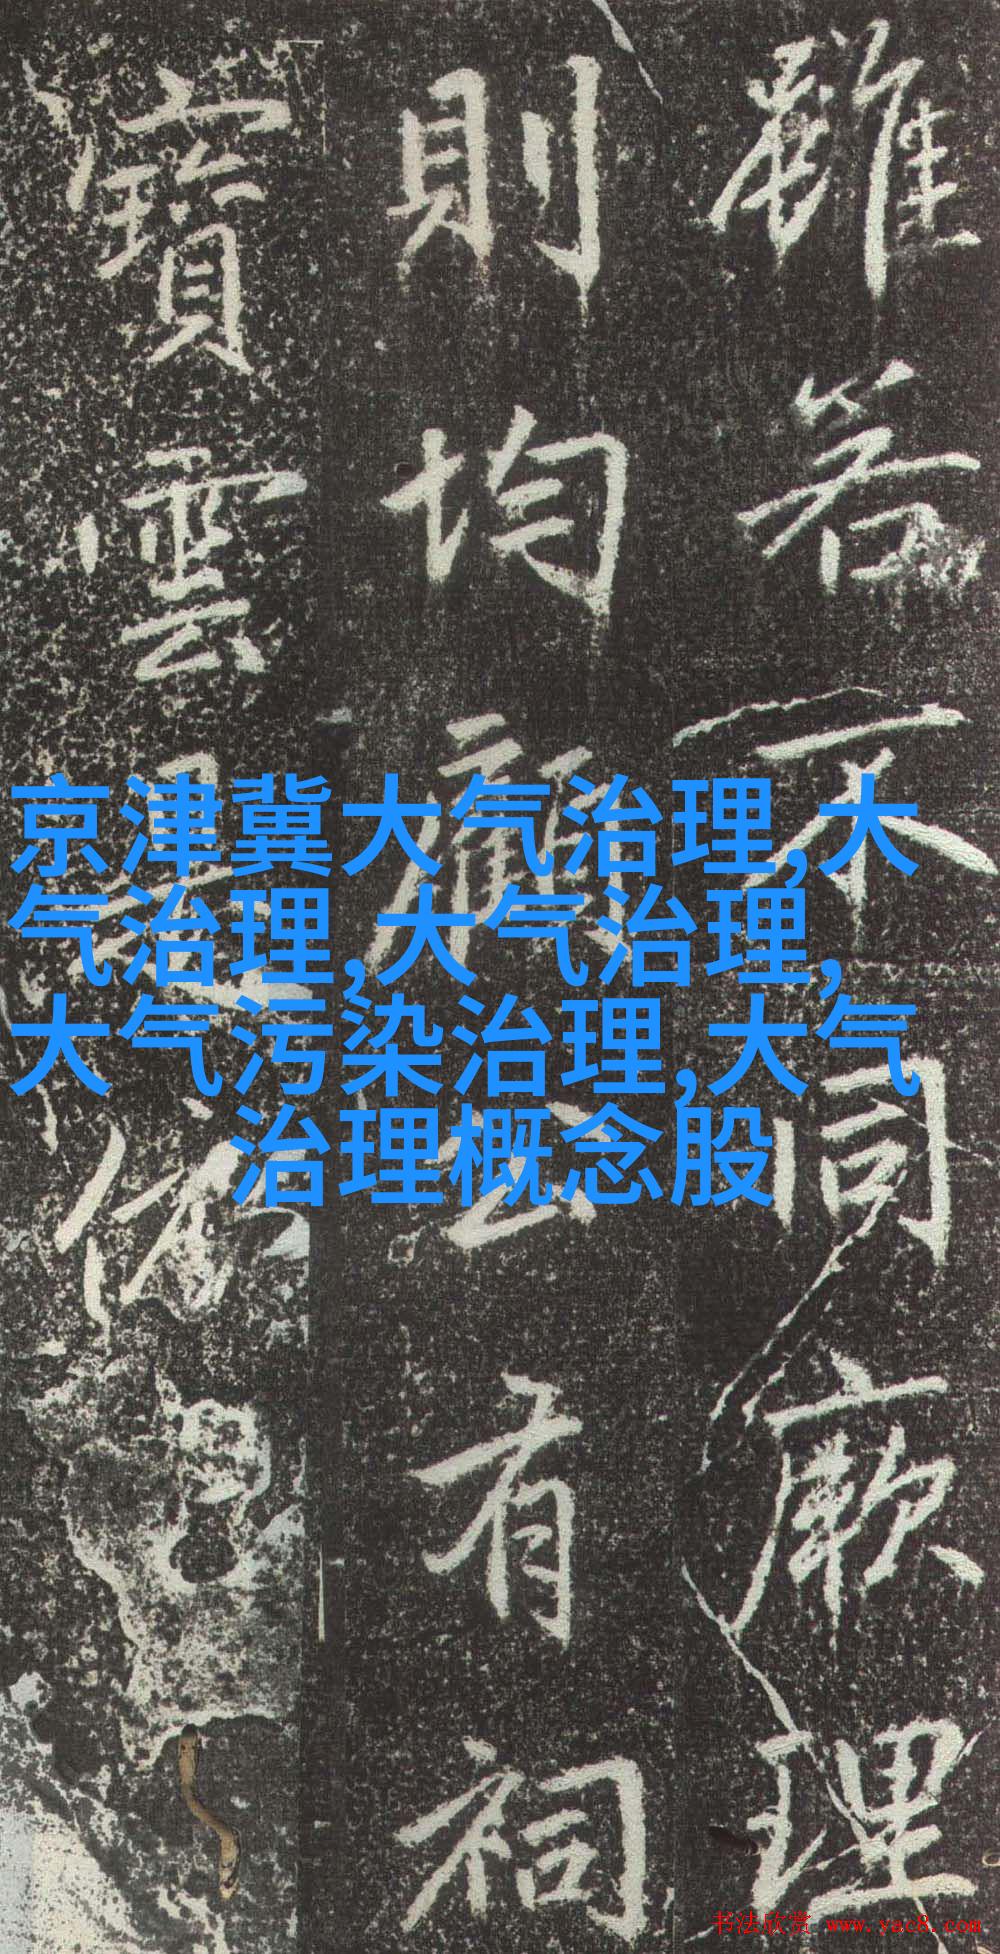 雖若不同厥理
則均顧公有祠
寶雲是依
京津冀大气治理,大
气治理,大气治理,
大气污染治理,大气
治理概念股
书法欣赏 www.yac8.com